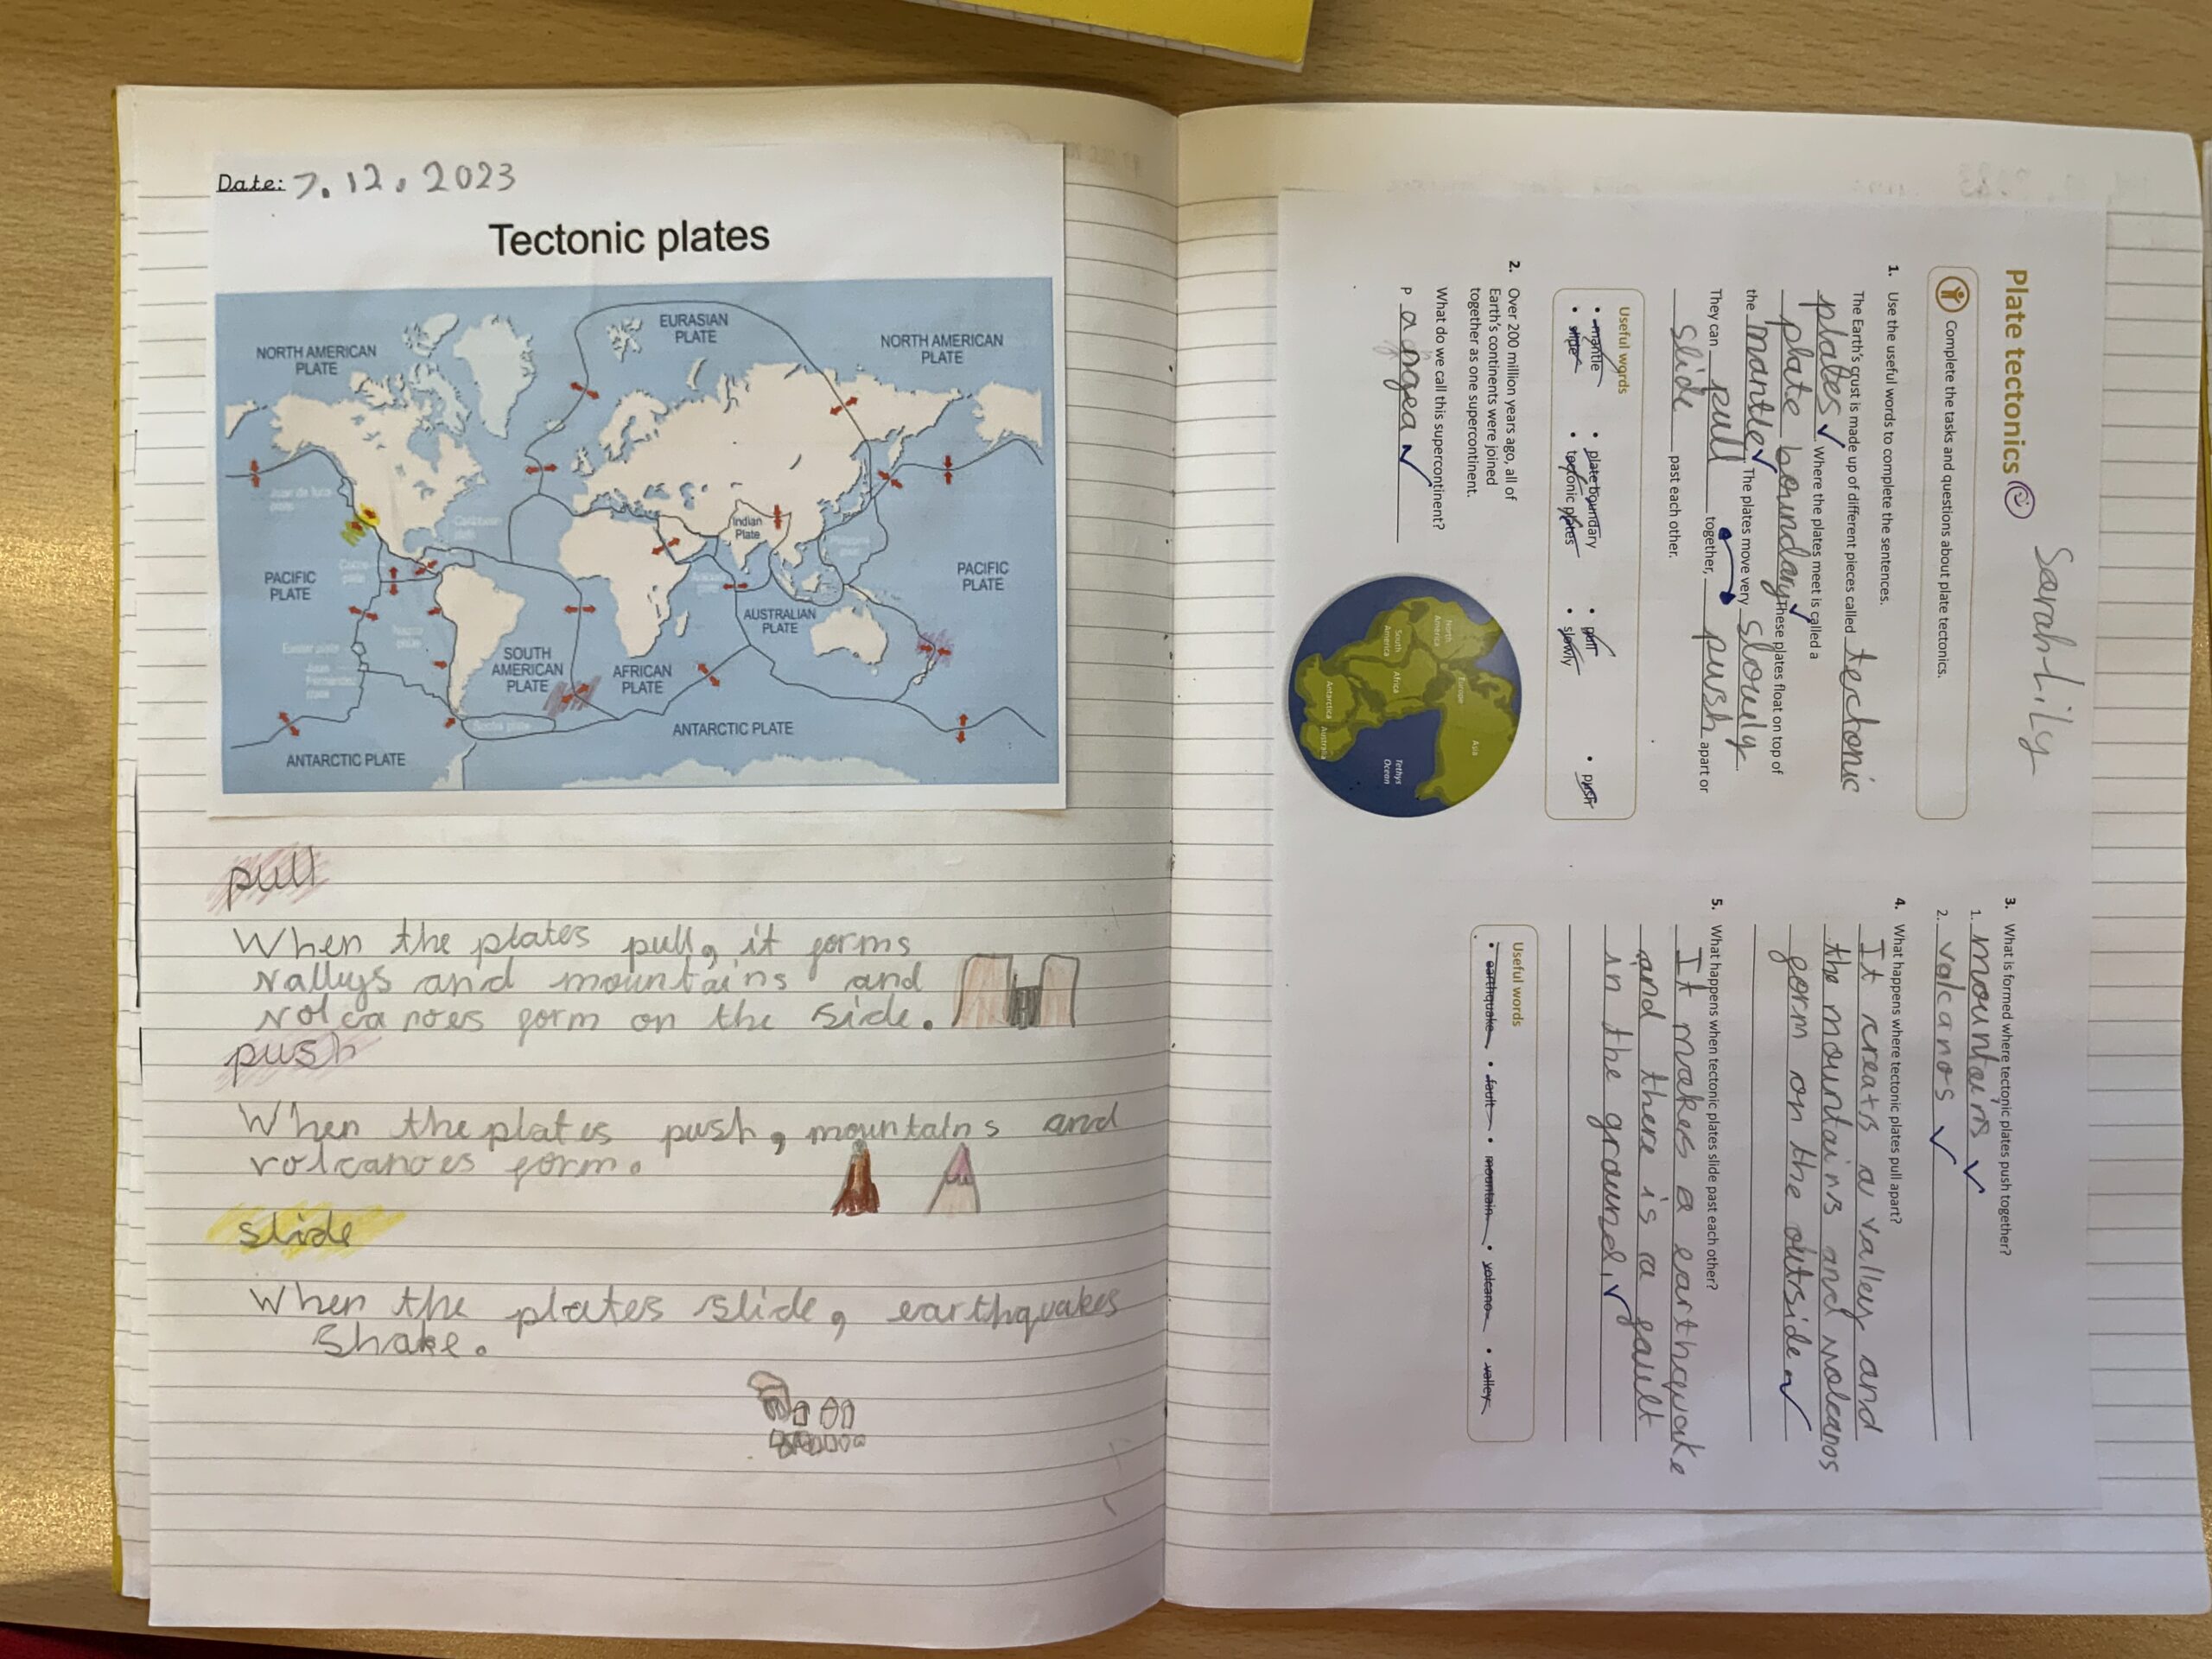 Date: 7.12.2023
Tectonic plates
EURASIAN
PLATE
NORTH AMERICAN
PLATE
NORTH AMERICAN
PLATE
Juan de fuca
plate
Caribbean
plate
Cocos
plate
Indian
Plate
PACIFIC
PLATE
PACIFIC
PLATE
AUSTRALIAN
PLATE
Easter plate
Juan
Fernandez
plate
SOUTH
AMERICAN
PLATE
AFRICAN
PLATE
Scotia plate
ANTARCTIC PLATE
ANTARCTIC PLATE
pull
When the plates pull, it forms
valleys and mountains and
volcanoes form on the side.
push
When the plates push, mountains and
volcanoes form.
slide
When the plates slide, earthquakes
shake.
Sarah-Lily
Plate tectonics
Complete the tasks and questions about plate tectonics.
1. Use the useful words to complete the sentences.
The Earth's crust is made up of different pieces called tectonic
plates. Where the plates meet is called a
plate boundary These plates float on top of
the mantle. The plates move very slowly.
They can pull together, push apart or
slide past each other.
Useful words
• mantle • plate boundary • pull • push
• slide • tectonic plates • slowly
2. Over 200 million years ago, all of
Earth's continents were joined
together as one supercontinent.
What do we call this supercontinent?
P angea
North
America
Europe
Asia
South
America
Africa
Tethys
Ocean
Antarctica
Australia
3. What is formed where tectonic plates push together?
1. mountains
2. valcanos
4. What happens where tectonic plates pull apart?
It creats a valley and
the mountains and voleanos
form on the outside
5. What happens when tectonic plates slide past each other?
It makes a earthquake
and there is a fault
in the ground.
Useful words
• earthquake • fault • mountain • volcano • valley